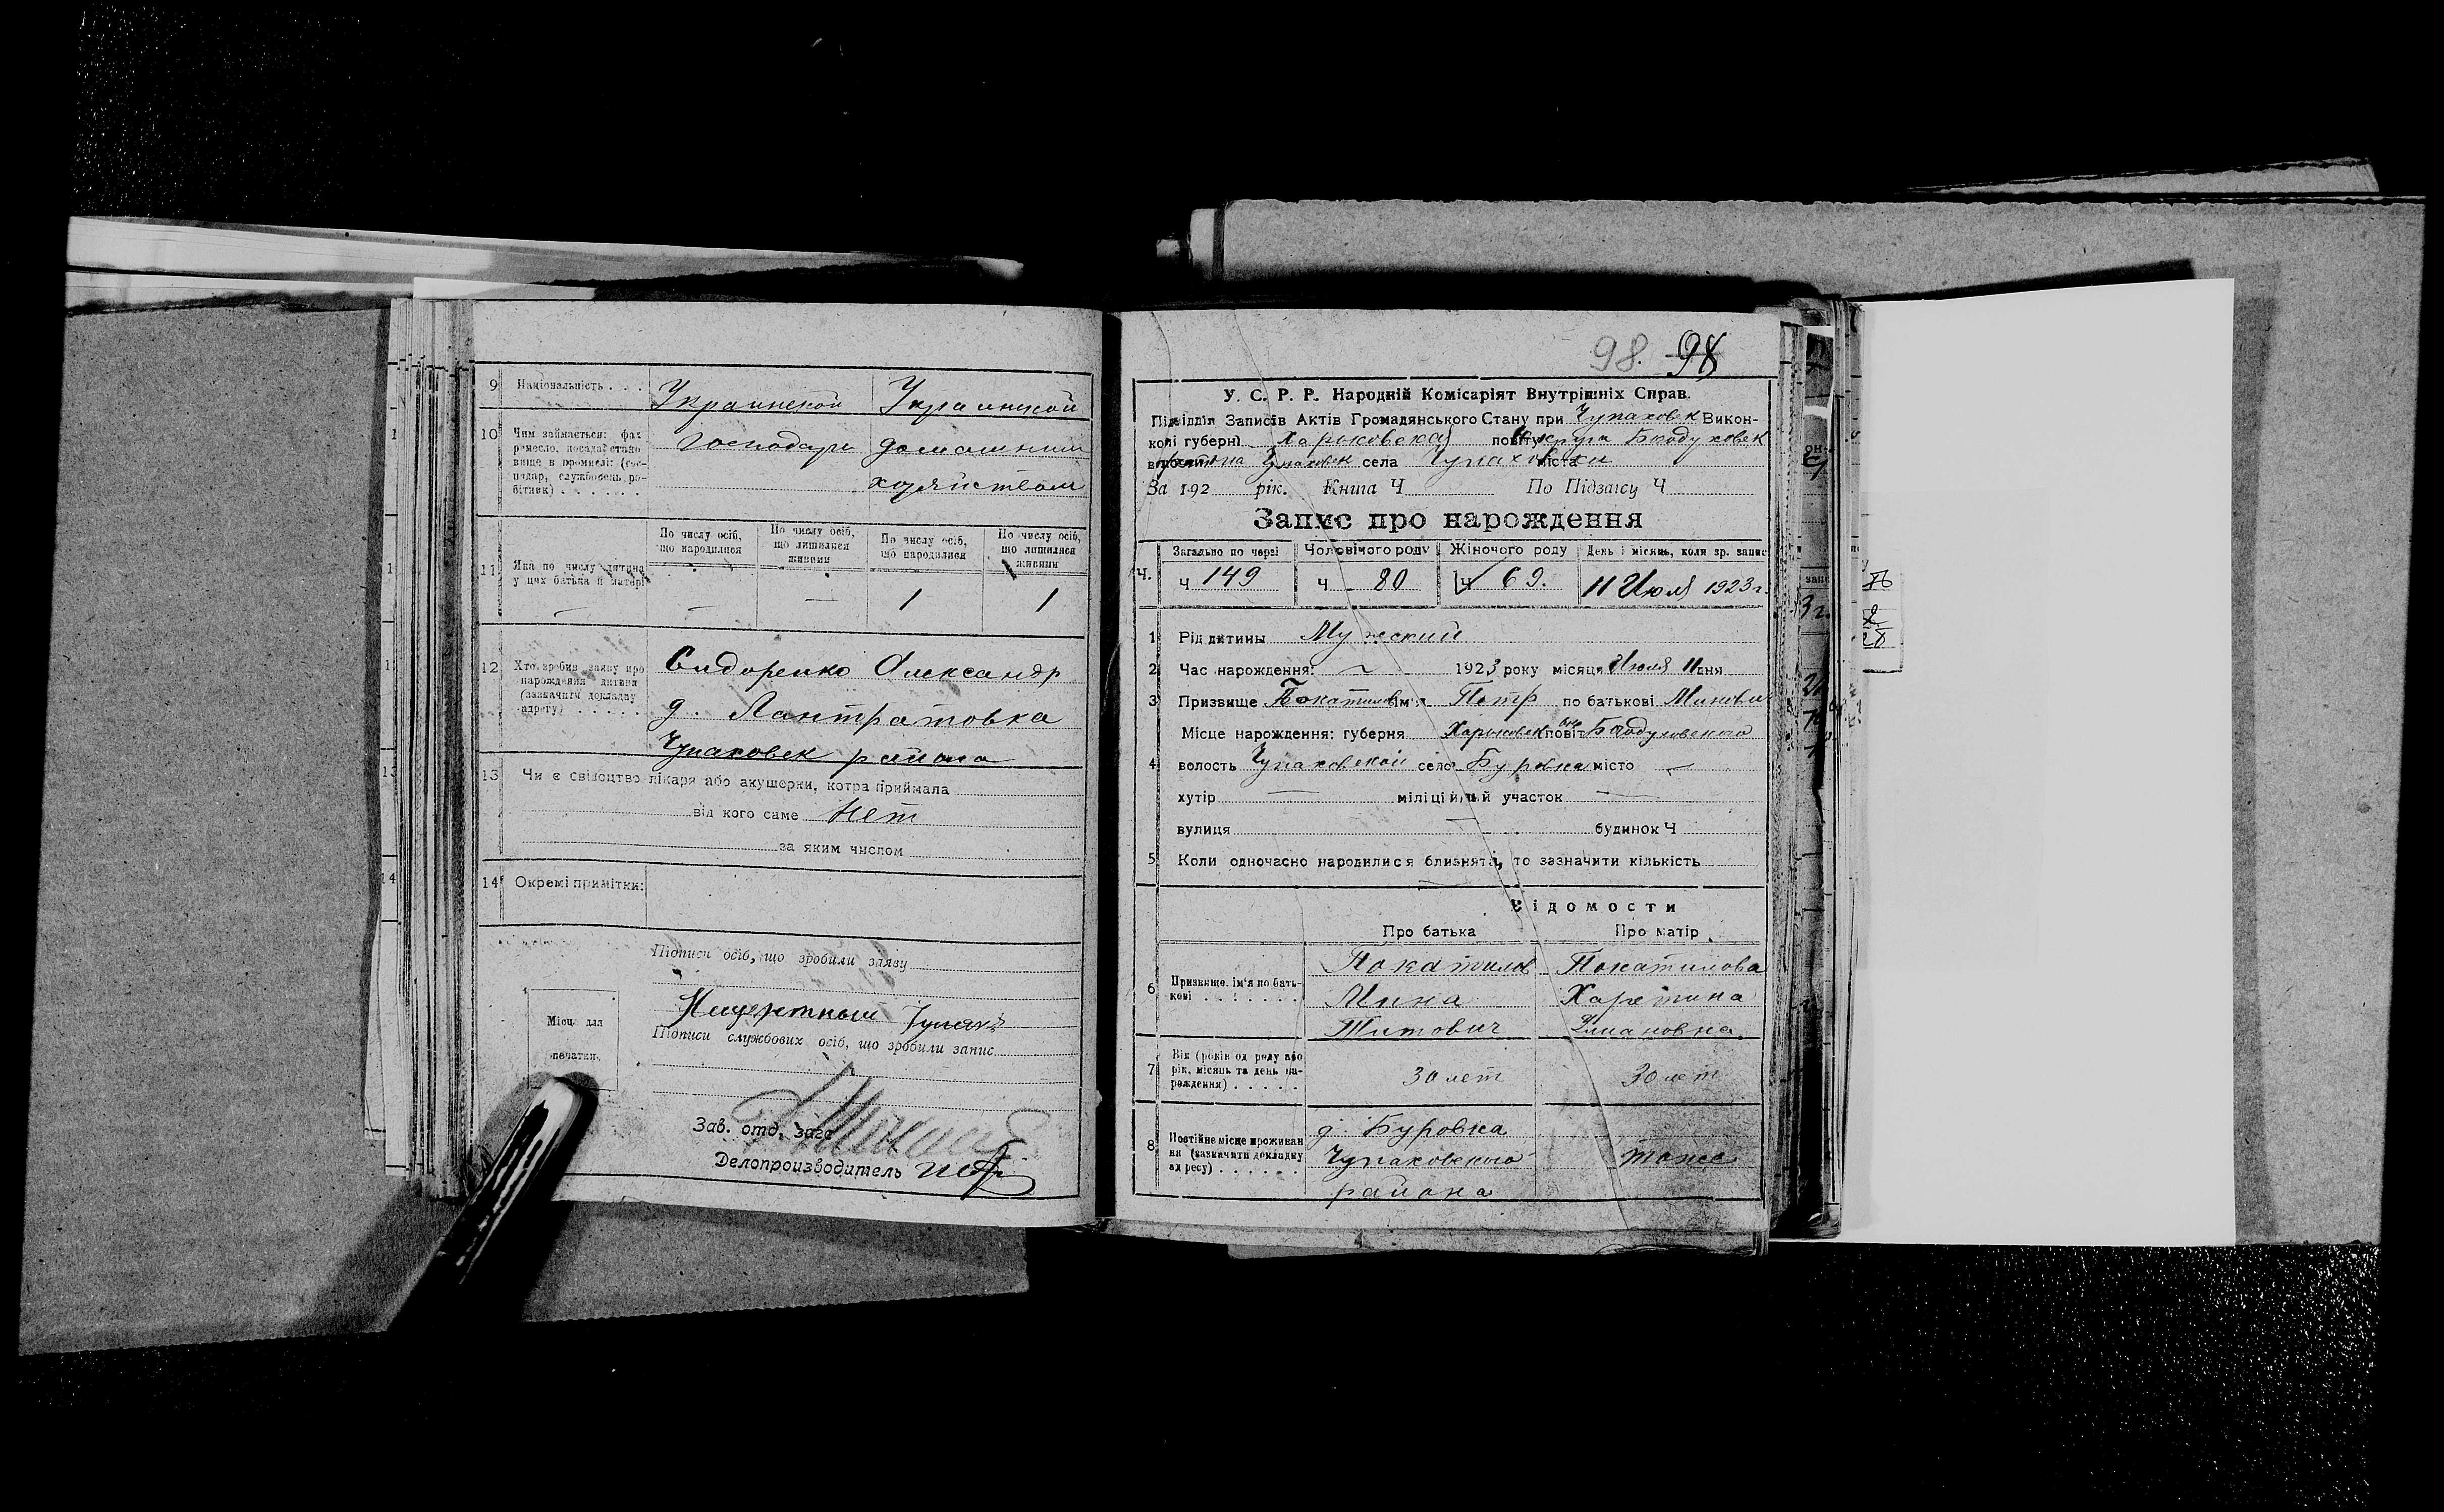 9 Національність . . . Украинской Украинской
10 Чим займається: фах ремесло, посада стано вище в промислі: (гос- подар, службовець ро- бітник) . . . . . . .
Господарь домашним
хозяйством
По числу осіб, що народилися
По числу осіб, що лишилися живими
По числу осіб, що народилися
По числу осіб, що лишилися живими
11 Яка по числу дитина у цих батька й матері
— — 1 1
12 Хто зробив заяву про нарождення дитини (зазначити докладну адресу) . . . . .
Сидоренко Александр
д. Лантратовка
Чупаховск района
13 Чи є свідоцтво лікаря або акушерки, котра приймала
від кого саме Нет
за яким числом
14 Окремі примітки:
Підписи осіб, що зробили заяву
Місце для печатки.
Підписи службових осіб, що зробили запис
Зав. отд. загс
Делопроизводитель
98. 98
У. С. Р. Р. Народній Комісаріят Внутрішніх Справ.
Підвідділ Записів Актів Громадянського Стану при Чупаховск Викон-
комі губерні Харьковская повіту округа Богодуховск
волости района Чупаховск села Чупаховки міста
За 192 рік. Книга Ч По Підзапису Ч
Запис про нарождення
Загально по черзі Чоловічого роду Жіночого роду День і місяць, коли зр. запис
Ч. ч 149 ч 80 ч 69. 11 Июля 1923 г.
1 Рід дитины Мужеский
2 Час нарождення: 1923 року місяця Июля 11 дня
3 Призвище Покатилов ім'я Петр по батькові Минович
Місце нарождення: губерня Харьковск повіт Богодуховского
4 волость Чупаховской село Буровка місто —
хутір — міліційний участок —
вулиця — будинок Ч
5 Коли одночасно народилися близнята, то зазначити кількість
Відомости
Про батька Про матір
6 Призвище, ім'я по бать- кові . . . . . . .
Покатилов Покатилова
Мина Харетина
Титович
7 Вік (років од роду або рік, місяць та день на- рождення) . . . . .
30 лет 30 лет
8 Постійне місце проживан ня (зазначити докладну адресу) . . . . . .
д. Буровка
Чупаховского тоже
района